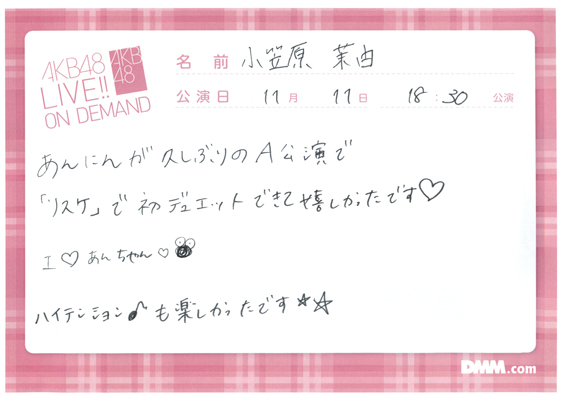 AKB48
LIVE!!
ON DEMAND
AKB
48
名 前 小笠原 茉由
公演日 11月 11日 18:30 公演
あんにんが久しぶりのA公演で
「リスケ」で初デュエットできて嬉しかったです♡
I♡あんちゃん♡
ハイテンション♪も楽しかったです★☆
DMM.com